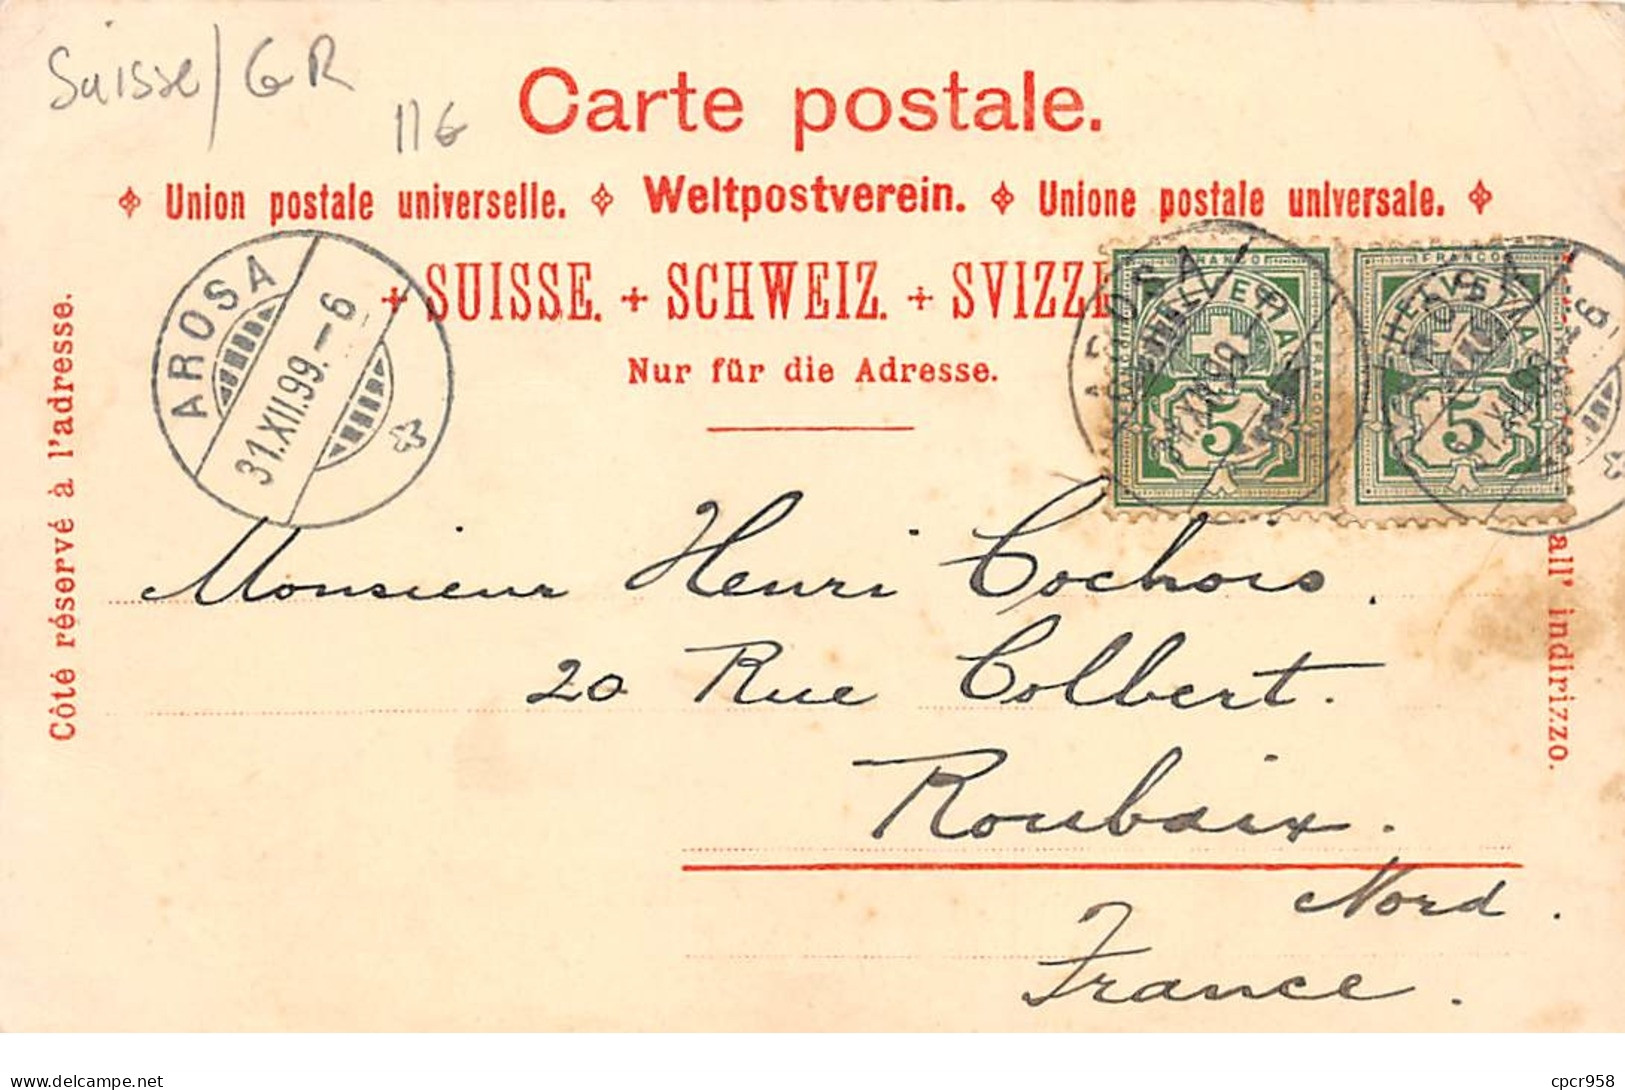 Suisse/GR
11€
Carte postale.
Union postale universelle. Weltpostverein. Unione postale universale.
+ SUISSE. + SCHWEIZ. + SVIZZE
Nur für die Adresse.
Côté réservé à l'adresse.
all' indirizzo.
AROSA
31.XII.99.-6
FRANCO
HELVETIA
5
FRANCO
HELVETIA
5
Monsieur Henri Cochois.
20 Rue Colbert.
Roubaix.
Nord.
France.
delcampe.net
cpcr958